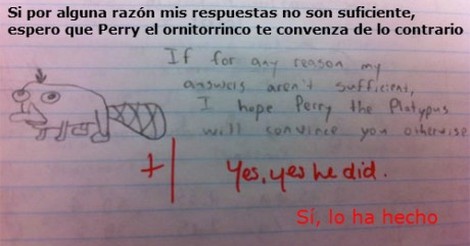 Si por alguna razón mis respuestas no son suficiente,
espero que Perry el ornitorrinco te convenza de lo contrario
If for any reason my
answers aren't sufficient,
I hope Perry the Platypus
will convince you otherwise
+1 Yes, yes he did.
Sí, lo ha hecho